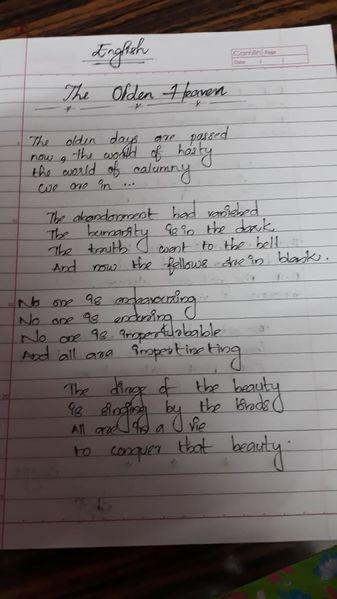 English
Camlin Page
Date
The Olden Heaven
The olden days are passed
now, the world of hasty
the world of calumny
we are in ...
The abandonment had vanished
The humanity is in the dark
The truth went to the hell
And now the fellows are in blank.
No one is endeavouring
No one is enduring
No one is imperturbable
And all are impertineting
The dirge of the beauty
is singing by the birds
All are in a vie
to conquer that beauty.